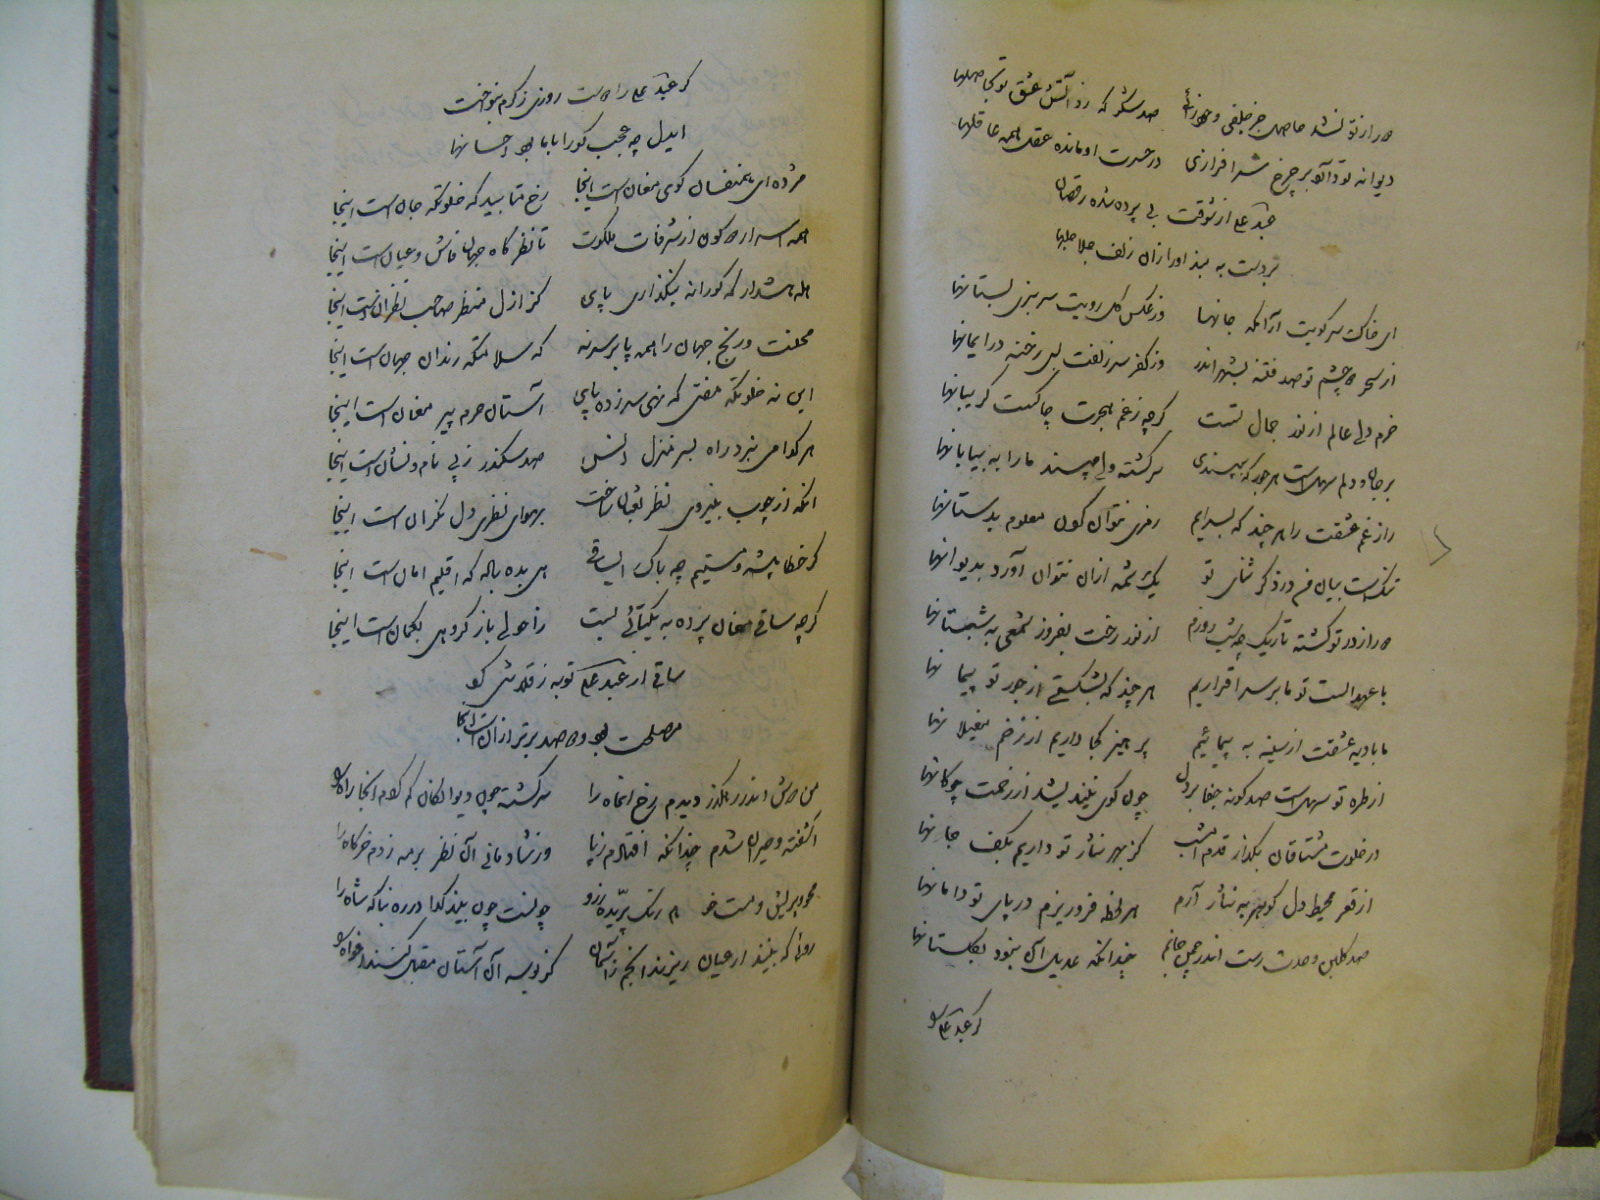 هر از تو نشد حاصل جز خلقی و صد شکر که زد آتش عشق تو بحاصلها
دیوانه تو تا بر چرخ سر افرازی در حسرت او مانده عقل همه عاقلها
عبدعلی از شوقت بی پرده شده رقصان
بر دست به بند او را زان زلف جلاجلها
ای خاک سر کویت آرامگه جانها وز عکس گل رویت سرسبزی بستانها
از سحر دو چشم تو صد فتنه بشهر اندر وز کفر سر زلفت بس رخنه در ایمانها
خرم دل عالم از نور جمال تست گرچه ز غم هجرت چاکست گریبانها
بر جان و دلم سهل است هر جور که بپسندی سرگشته ولی مپسند ما را به بیابانها
راز غم عشقت را هر چند که بسرایم رمزی نتوان کردن معلوم بدستانها
بیان فهم در ذکر ثنای تو یک شمه از آن نتوان آورد بدیوانها
از در تو گشته تاریک چو شب روزم از نور رخت بفروز شمعی به شبستانها
با عهد الست تو ما بر سر اقراریم هر چند که بشکستی از جور تو پیمانها
ما بادیه عشقت از سینه به پیمائیم پرهیز کجا داریم از زخم مغیلانها
از طره تو سهل است صد گونه جفا بر دل چون گوی نیندیشد از زخمت چوگانها
در خلوت مشتاقان بگذار قدم امشب کز بهر نثار تو داریم بکف جانها
از قعر محیط دل گوهر به نثار آرم هر لحظه فرو ریزم در پای تو دامانها
صد گلبن وحدت رست اندر چمن جانم چندانکه عدیل آن نبود بگلستانها
گر عبدعلی
گر عبدعلی را دست روزی ز کرم بنواخت
ایدل چه عجب کو را با ما بود احسانها
مژده ای همنفسان کوی مغان است اینجا رخ متابید که خلوتگه جان است اینجا
همه اسرار دو کون از شرفات ملکوت تا نظرگاه جهان فاش و عیان است اینجا
هله هشدار که کورانه نگذاری پای کز ازل منظر صاحب نظران است اینجا
محنت و رنج جهان را همه پا بر سر نه که سلامتگه رندان جهان است اینجا
این نه خلوتگه مفتی که نهی سر زده پای آستان حرم پیر مغان است اینجا
هر گدا می نبرد راه بسر منزل صد سکندر ز پی نام و نشان است اینجا
آنکه از چوب نظر ثعبان ساخت بهوای نظری دل نگران است اینجا
گر خطا پیشه و مستیم چه باک ای ساقی می بده باله که اقلیم امان است اینجا
گرچه ساقی مغان پرده به یکتائی بست احولی باز گرو بگمان است اینجا
ساقی ار عبدعلی توبه ز قلاشی کرد
مصلحت بود و دو صد برتر از آن است اینجا
من دوش اندر رهگذر دیدم رخ آنماه را سرگشته چون دیوانگان گم کردم آنجا راه را
آشفته و حیران شدم چندانکه افتادم ز پا وز شادمانی آن نظر بر مه زدم خرگاه را
محو پریش و مست خو هم رنگ پریده ز رو چونست چون بیند گدا در ره بناگه شاه را
روئی که بیند ار عیان ریزند انجم ز آسمان کز بوسه آن آستان مقبل کنند افواه را